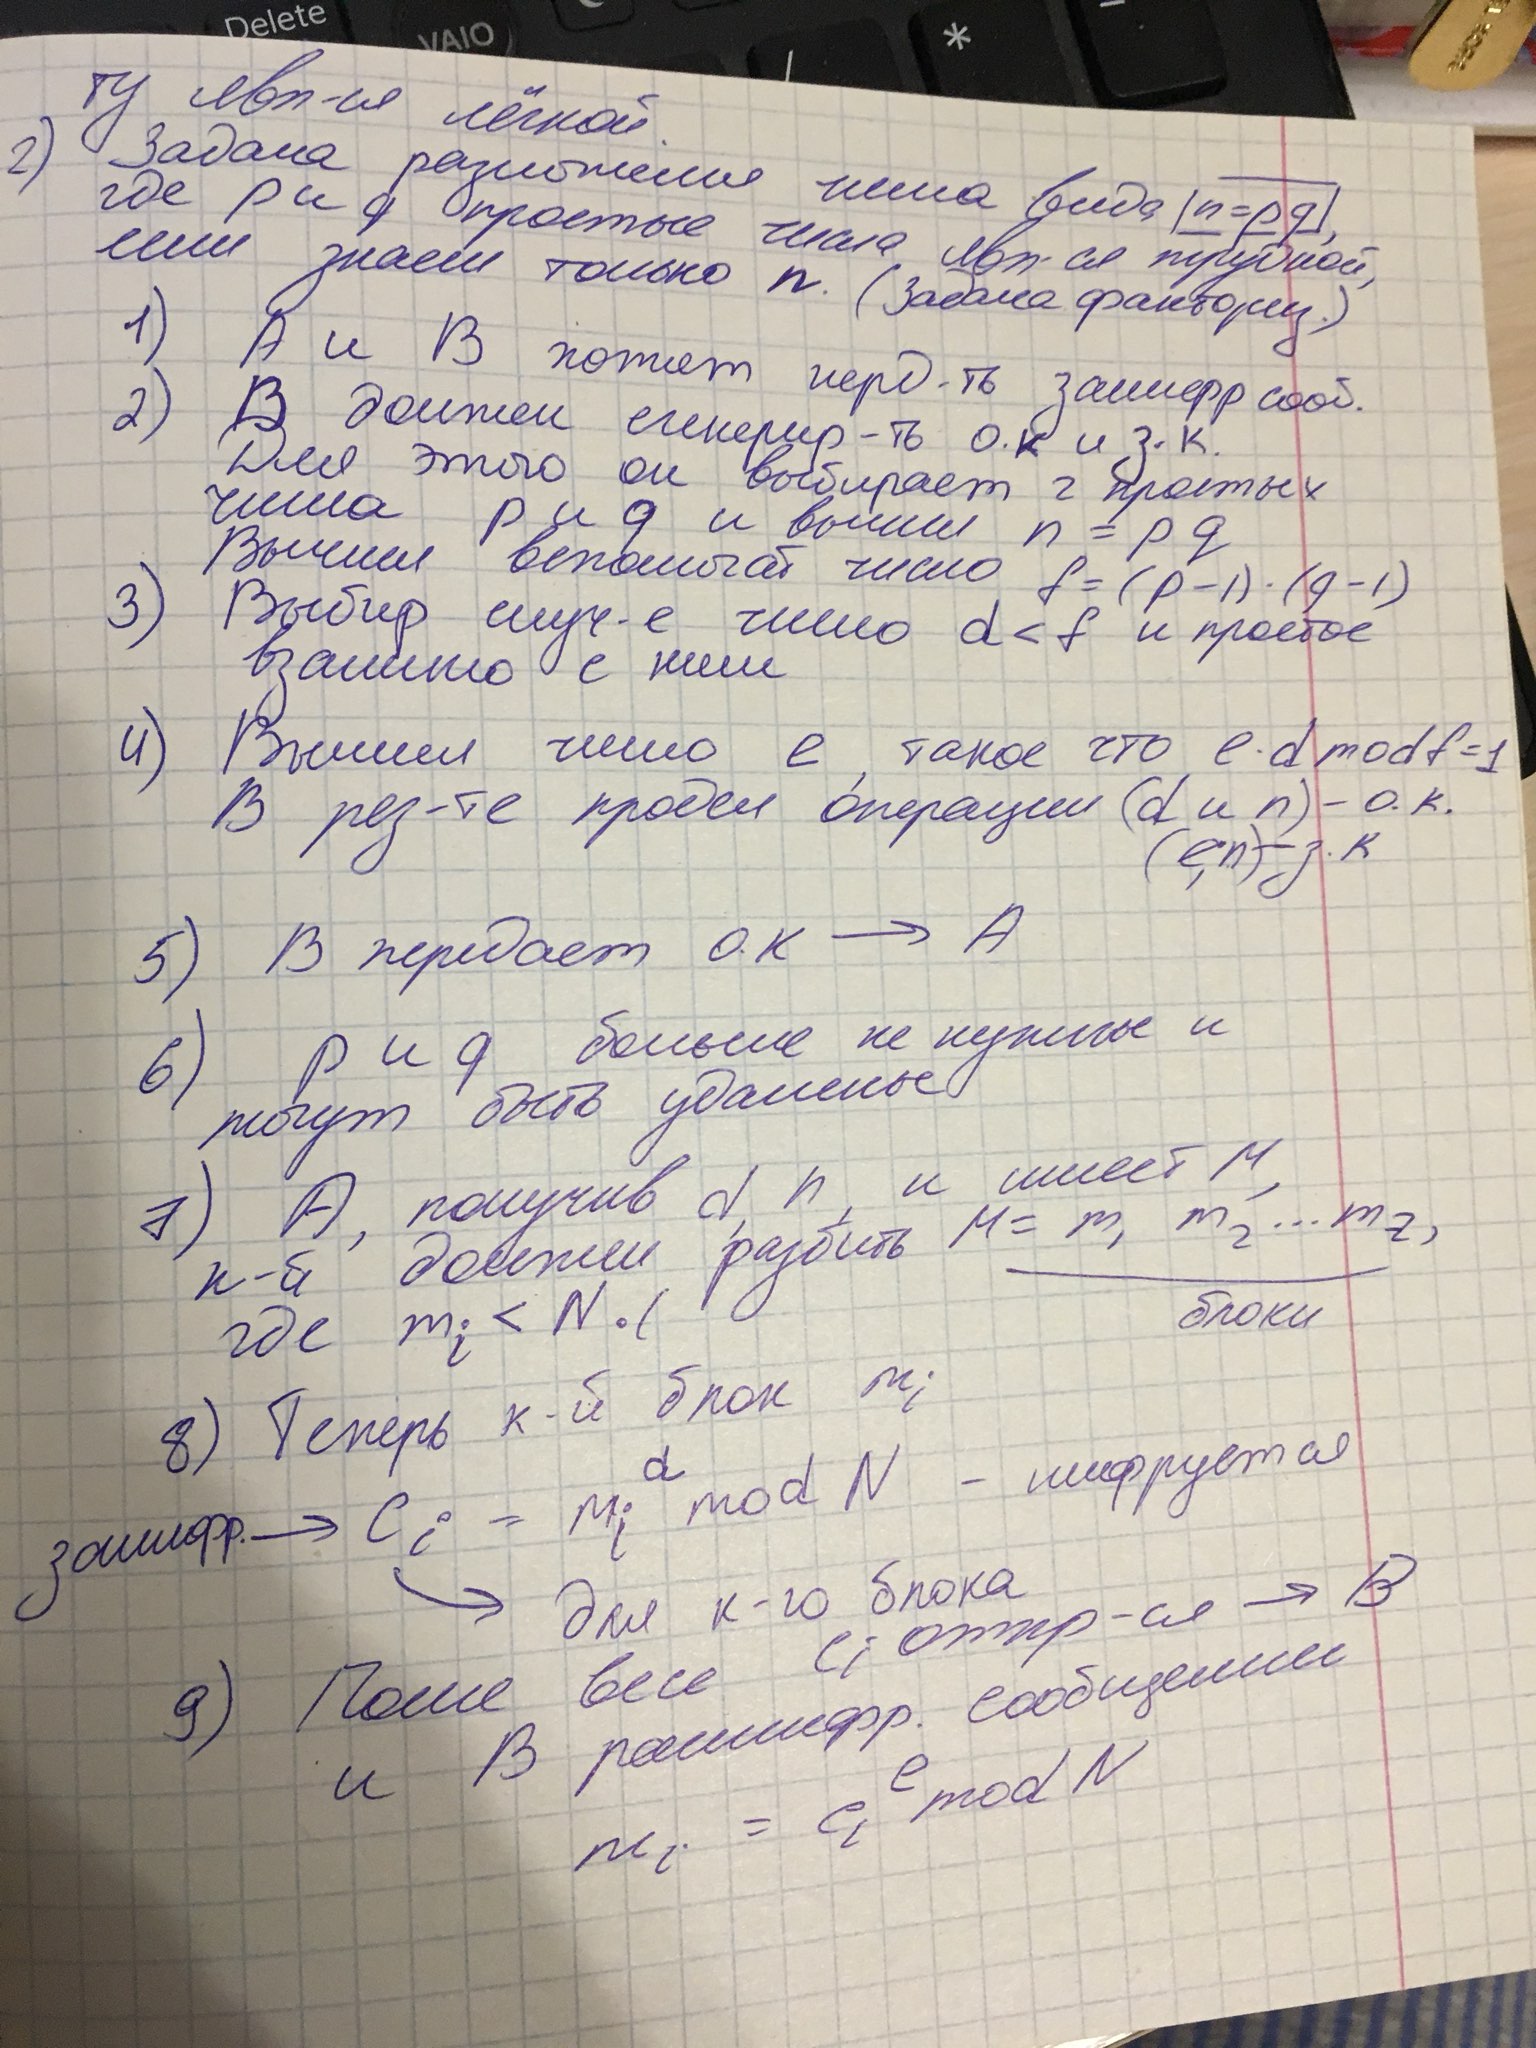 Delete
VAIO
*
ту явл-ся лёгкой.
2) Задача разложения числа вида n=pq,
где p и q простые числа явл-ся трудной,
если знаем только n. (Задача факториз.)
1) A и B хотят перед-ть зашифр сооб.
2) B должен сгенерир-ть о.к и з.к.
Для этого он выбирает 2 простых
числа p и q и вычисл n = pq
Вычисл вспомогат число f=(p-1)·(q-1)
3) Выбир случ-е число d<f и простое
взаимно с ним
4) Вычисл число e, такое что e·d mod f=1
В рез-те продел операции (d и n) - о.к.
(e,n) - з.к
5) B передает о.к → A
6) p и q больше не нужны и
могут быть удалены
7) A, получив d, n, и имеет M,
к-й должен разбить M= m₁ m₂ ... m₂,
блоки
где mᵢ < N.(
8) Теперь к-й блок mᵢ
зашифр. → Cᵢ = mᵢᵈ mod N - шифруется
для к-го блока
9) После всех cᵢ отпр-ся → B
и B расшифр. сообщение
mᵢ = cᵢᵉ mod N